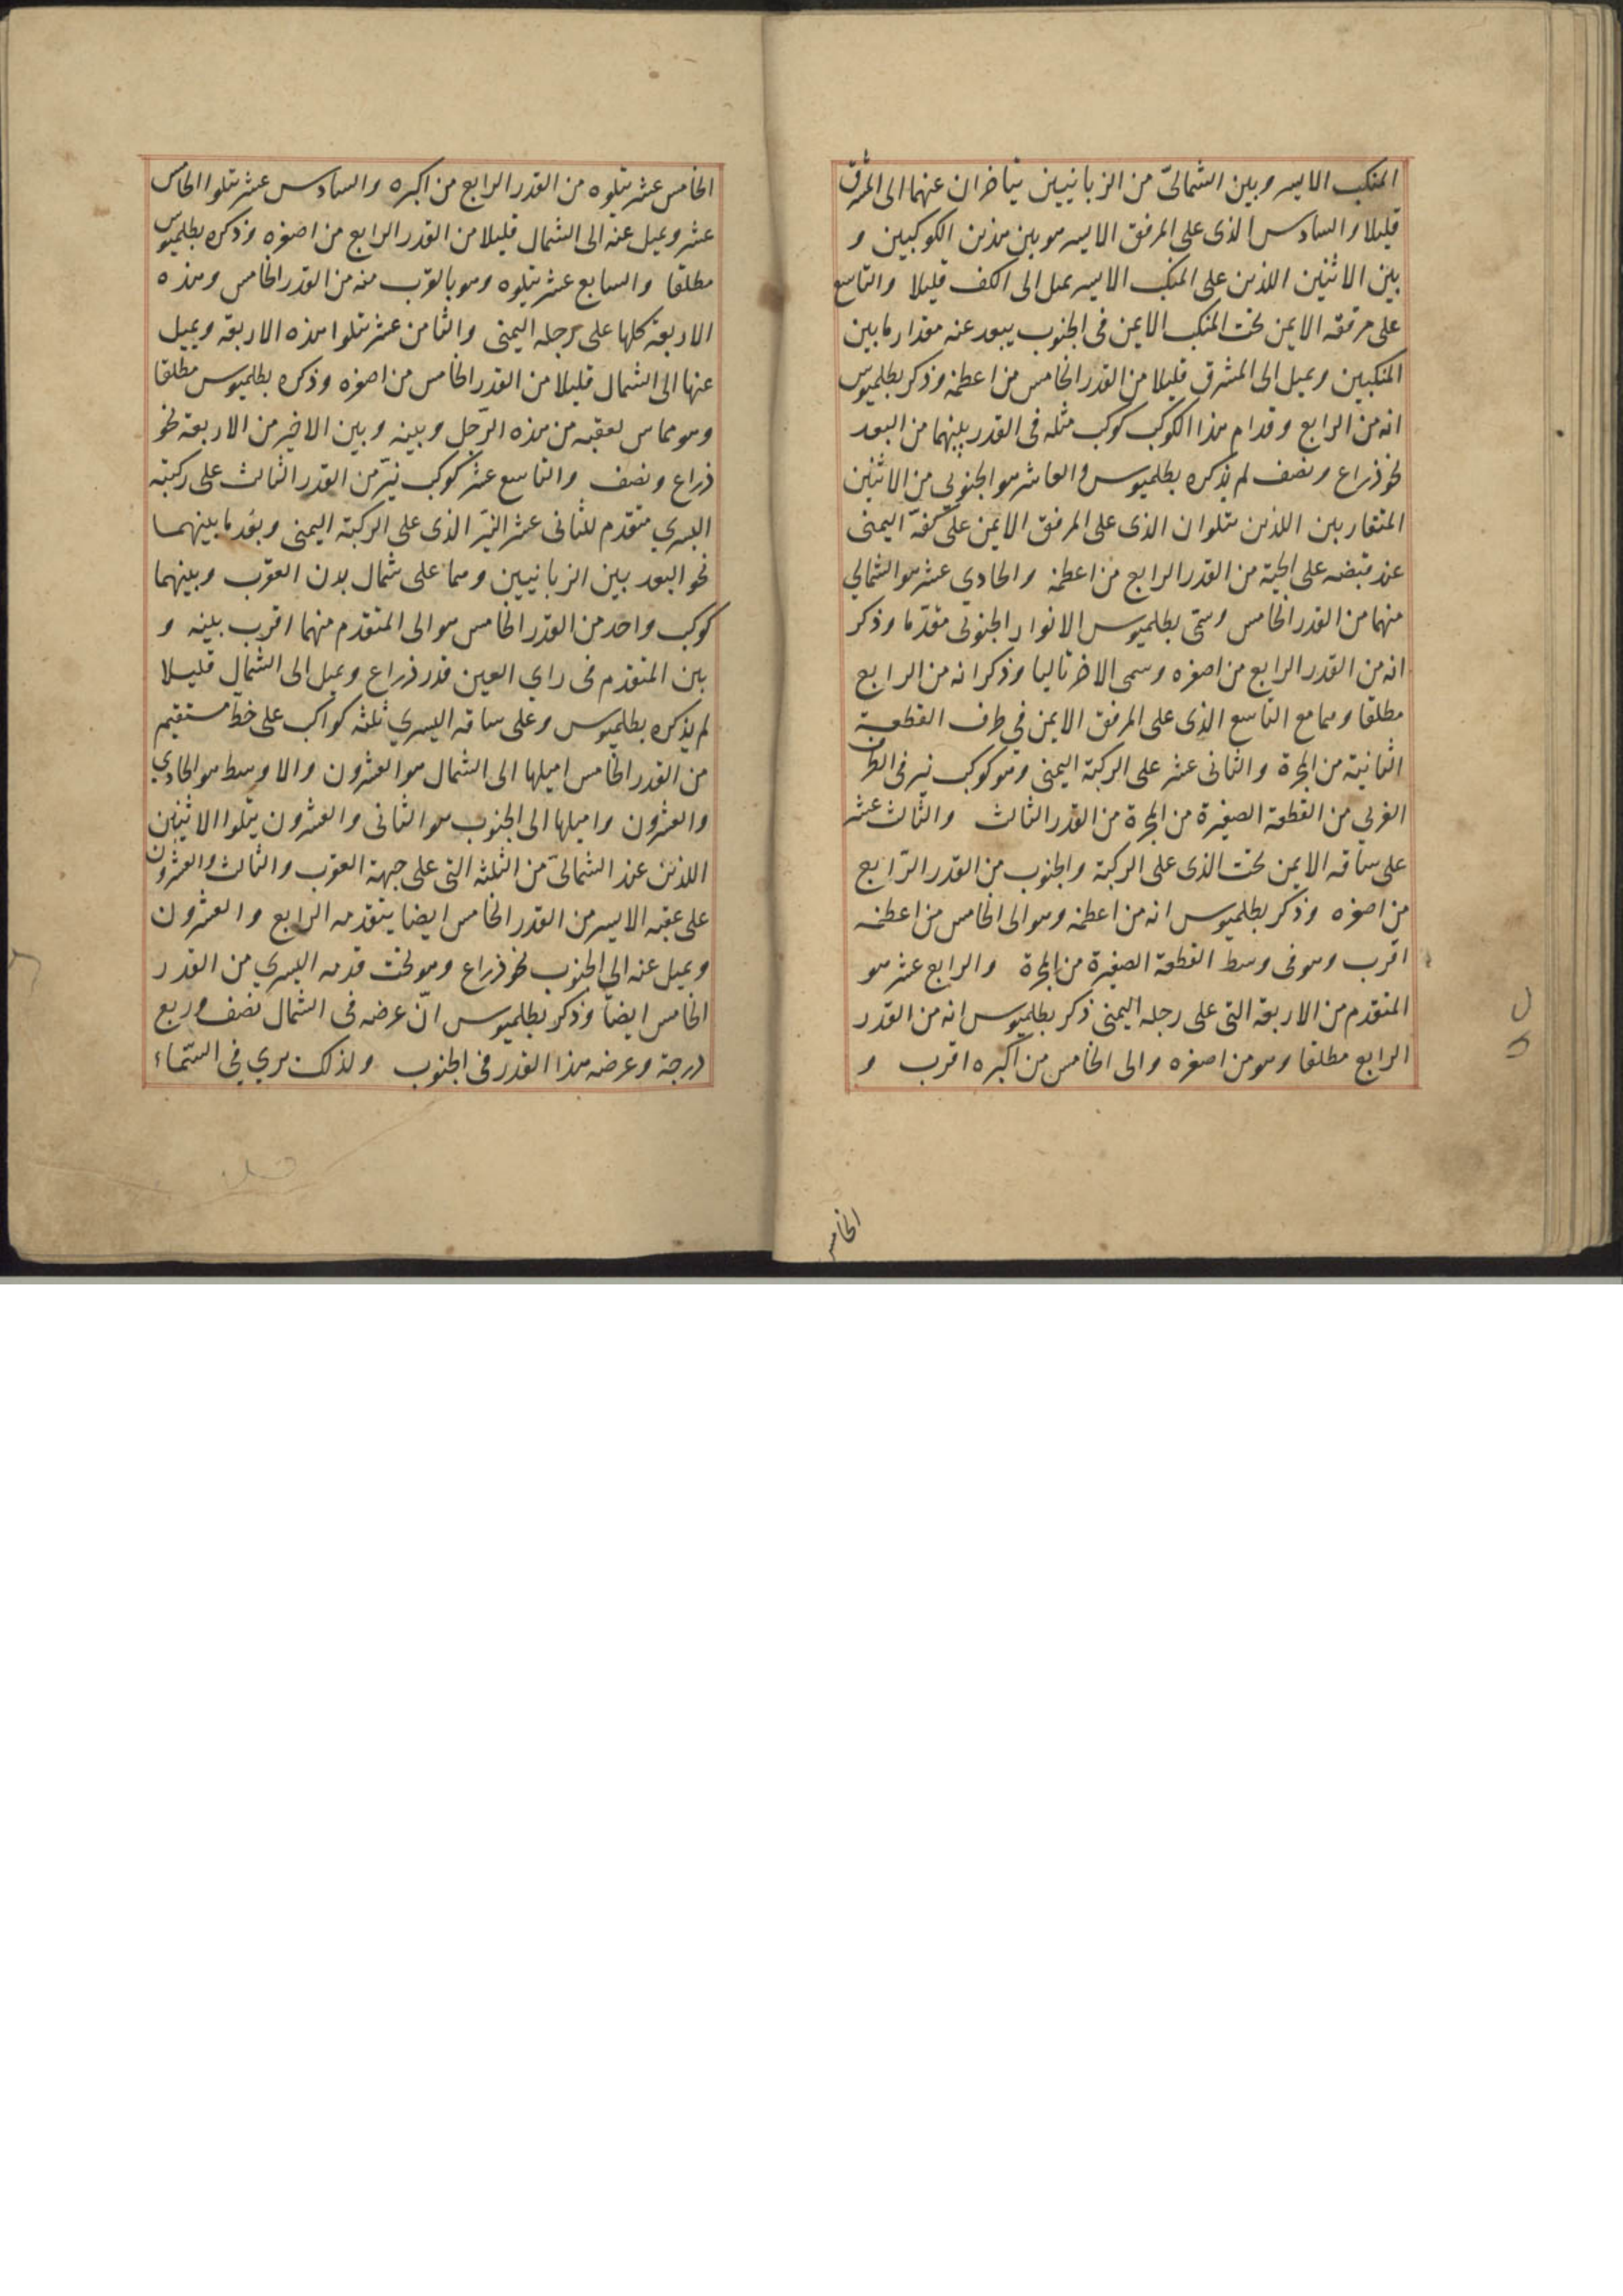 المنكب الايسر وبين الشمالىّ من الزبانيين يتاخران عنهما الى المشرق
قليلا والسادس الذى على المرفق الايسر هو بين هذين الكوكبين و
بين الاثنين اللذين على المنكب الايسر يميل الى الكف قليلا والتاسع
على مرفقه الايمن تحت المنكب الايمن فى الجنوب يبعد عنه مقدار ما بين
المنكبين ويميل الى المشرق قليلا من القدر الخامس من اعظمه وذكر بطلميوس
انه من الرابع وقدام هذا الكوكب كوكب مثله فى القدر بينهما من البعد
نحو ذراع ونصف لم يذكره بطلميوس والعاشر هو الجنوبى من الاثنين
المتقاربين اللذين يتلوان الذى على المرفق الايمن على كفّه اليمنى
عند قبضه على الحية من القدر الرابع من اعظمه والحادي عشر هو الشمالي
منهما من القدر الخامس وسمّى بطلميوس الانوار الجنوبى مقدّما وذكر
انه من القدر الرابع من اصغره وسمى الاخر تاليا وذكر انه من الرابع
مطلقا وهما مع التاسع الذى على المرفق الايمن في طرف القطعة
الثانية من المجرة والثانى عشر على الركبة اليمنى وهو كوكب نير فى الطرف
الغربي من القطعة الصغيرة من المجرة من القدر الثالث والثالث عشر
على ساقه الايمن تحت الذى على الركبة والجنوب من القدر الرّابع
من اصغره وذكر بطلميوس انه من اعظمه وهو الى الخامس من اعظمه
اقرب وهو فى وسط القطعة الصغيرة من المجرة والرابع عشر هو
المتقدم من الاربعة التى على رجله اليمنى ذكر بطلميوس انه من القدر
الرابع مطلقا وهو من اصغره والى الخامس من اكبره اقرب و
الخامس
الخامس عشر يتلوه من القدر الرابع من اكبره والسادس عشر يتلوا الخامس
عشر ويميل عنه الى الشمال قليلا من القدر الرابع من اصغره وذكره بطلميوس
مطلقا والسابع عشر يتلوه وهو بالقرب منه من القدر الخامس وهذه
الاربعة كلها على رجله اليمنى والثامن عشر يتلوا هذه الاربعة ويميل
عنها الى الشمال قليلا من القدر الخامس من اصغره وذكره بطلميوس مطلقا
وهو مماس لعقبه من هذه الرّجل وبينه وبين الاخير من الاربعة نحو
ذراع ونصف والتاسع عشر كوكب نيّر من القدر الثالث على ركبته
اليسري متقدم للثانى عشر النيّر الذى على الركبة اليمنى وبعد ما بينهما
نحو البعد بين الزبانيين وهما على شمال بدن العقرب وبينهما
كوكب واحد من القدر الخامس هو الى المتقدم منهما اقرب بينه و
بين المتقدم فى راي العين قدر ذراع ويميل الى الشمال قليلا
لم يذكره بطلميوس وعلى ساقه اليسري ثلثه كواكب على خط مستقيم
من القدر الخامس اميلها الى الشمال هو العشرون والاوسط هو الحادي
والعشرون واميلها الى الجنوب هو الثانى والعشرون يتلوا الاثنين
اللذين عند الشمالىّ من الثلثه التى على جبهة العقرب والثالث والعشرون
على عقبه الايسر من القدر الخامس ايضا يتقدمه الرابع والعشرون
ويميل عنه الى الجنوب نحو ذراع وهو تحت قدمه اليسري من القدر
الخامس ايضاً وذكر بطلميوس انّ عرضه فى الشمال نصف وربع
درجة وعرضه هذا القدر فى الجنوب ولذلك يري في السّماء